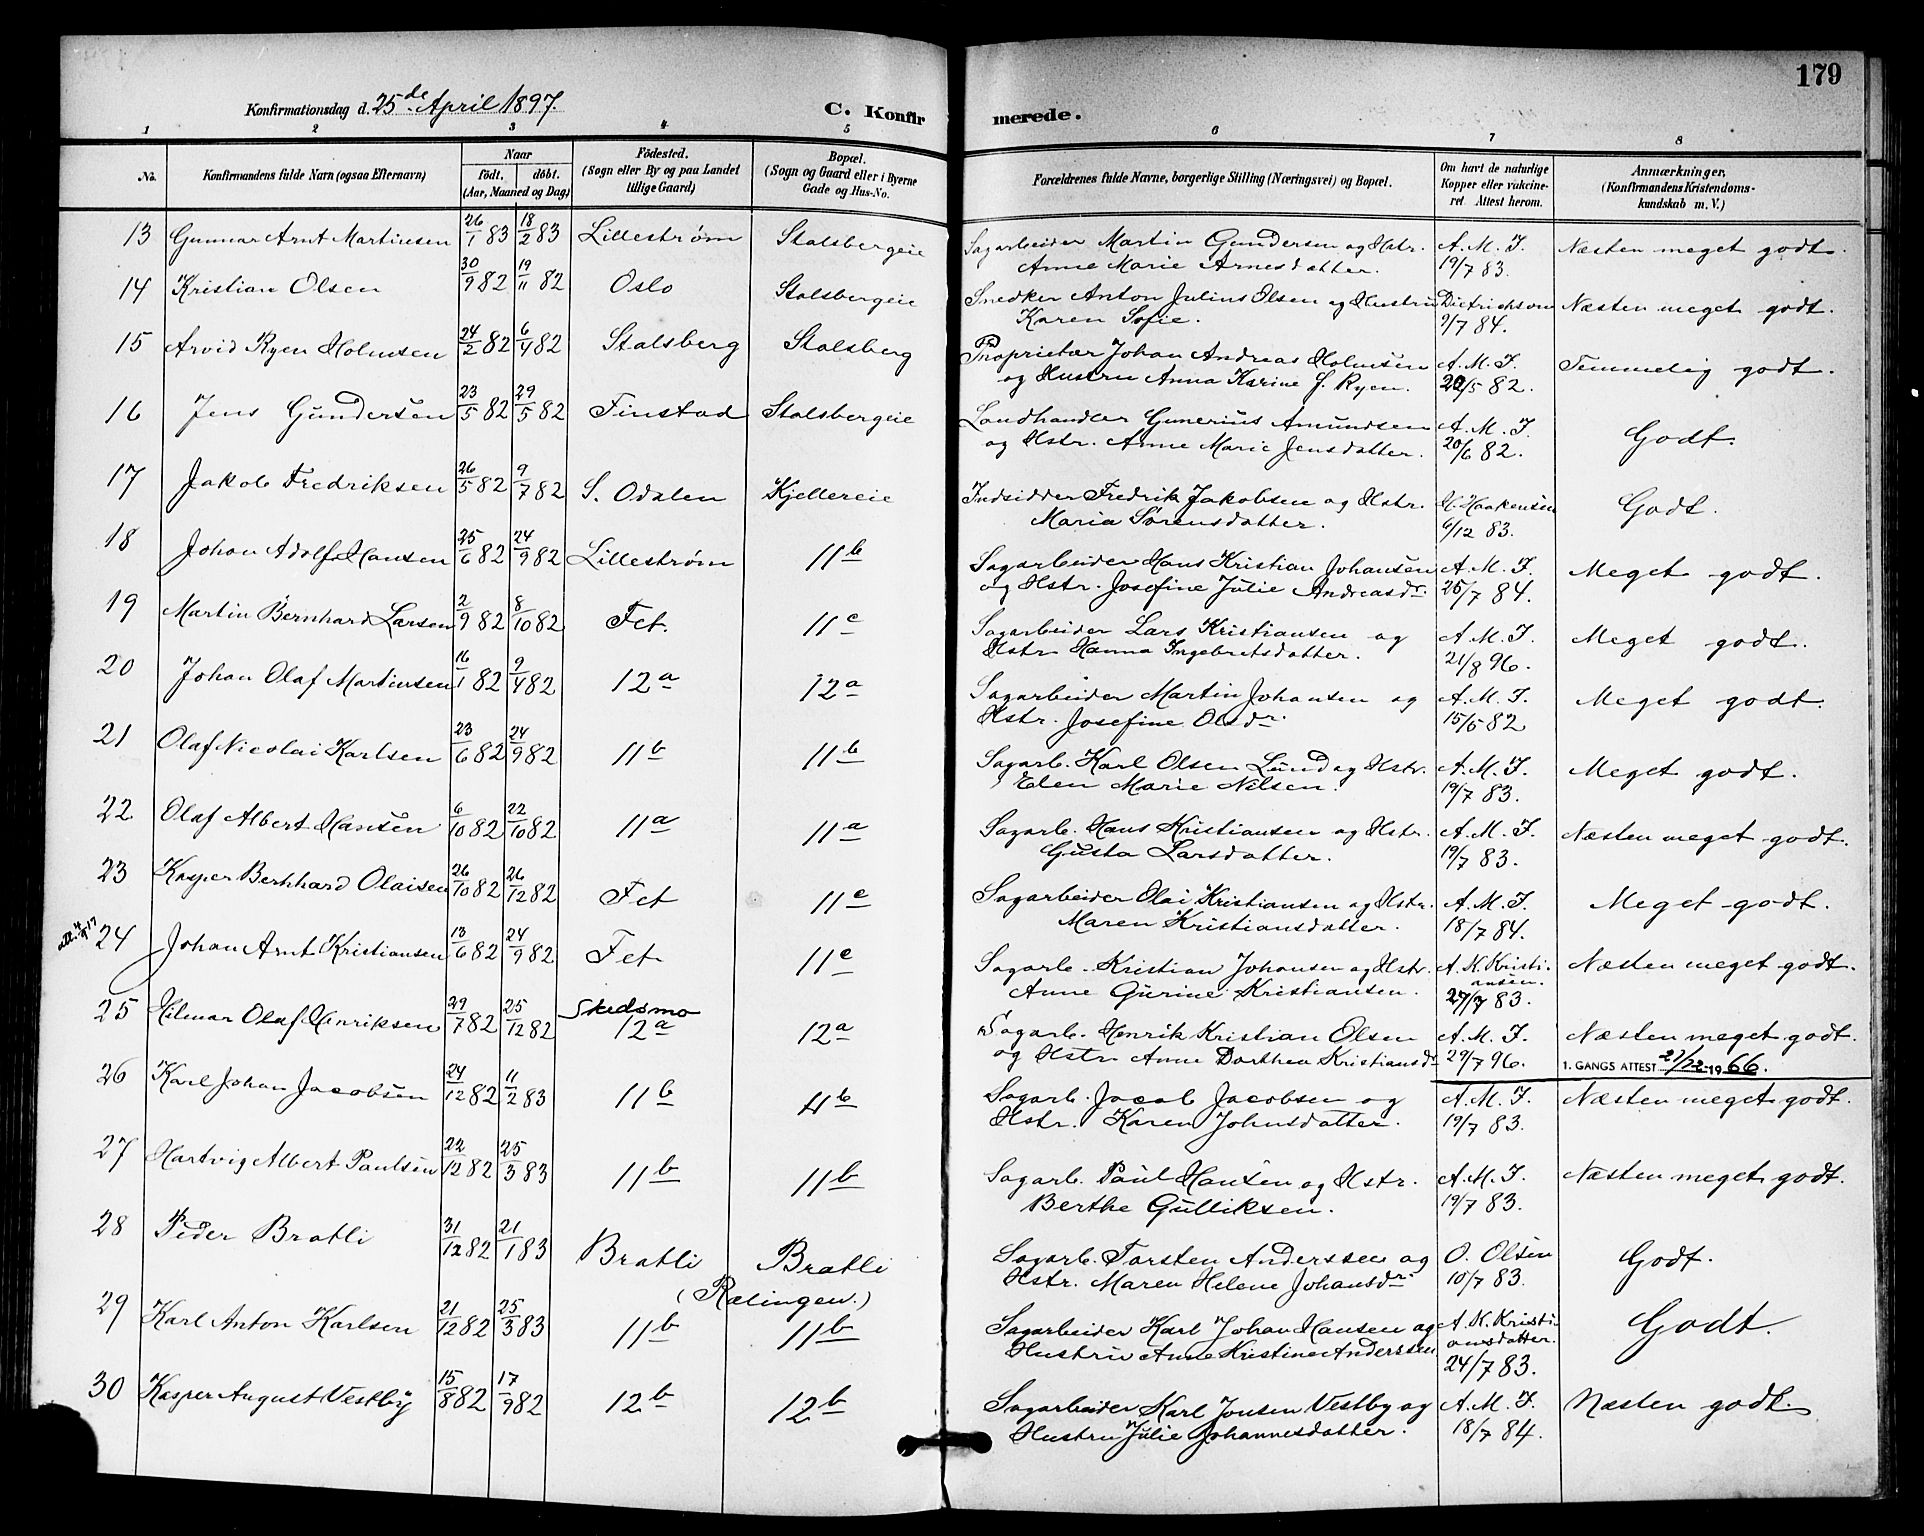 179
Konfirmationsdag d. 25de April 1897.
C. Konfirmerede.
1 2 3 4 5 6 7 8
No.
Konfirmandens fulde Navn (ogsaa Efternavn)
Naar
födt. döbt.
(Aar, Maaned og Dag)
Födested.
(Sogn eller By og paa Landet
tillige Gaard)
Bopæl.
(Sogn og Gaard eller i Byerne
Gade og Hus-No.
Forældrenes fulde Navne, borgerlige Stilling (Næringsvei) og Bopæl.
Om havt de naturlige
Kopper eller vakcine-
ret. Attest herom.
Anmærkninger,
(Konfirmandens Kristendoms-
kundskab m. V.)
13 Gunnar Arnt Martinsen 26/1 83 18/2 83 Lillestrøm Stalsbergeie Sagarbeider Martin Gundersen og Hstr. A. M. I. Næsten meget godt.
Anne Marie Arnesdatter. 19/7 83.
14 Kristian Olsen 30/9 82 19/11 82 Oslo Stalsbergeie Snedker Anton Julius Olsen og Hustru Dietrichson Næsten meget godt.
Karen Sofie. 9/7 84.
15 Arvid Ryen Holmsen 24/2 82 6/4 82 Stalsberg Stalsberg Proprietær Johan Andreas Holmsen A. M. I. Temmelig godt.
og Hustru Anna Karine f. Ryen. 20/5 82.
16 Jens Gundersen 23/5 82 29/5 82 Finstad Stalsbergeie Landhandler Gunerius Amundsen A. M. I. Godt.
og Hstr. Anne Marie Jensdatter. 20/6 82.
17 Jakob Fredriksen 26/5 82 9/7 82 S. Odalen Kjellereie Indsidder Fredrik Jakobsen og Hstr. H. Haakensen Godt.
Maria Sørensdatter. 6/12 83.
18 Johan Adolf Hansen 25/6 82 24/9 82 Lillestrøm 11b Sagarbeider Hans Kristian Johansen A. M. I. Meget godt.
og Hstr. Josefine Julie Andreasdr. 25/7 84.
19 Martin Bernhard Larsen 2/9 82 8/10 82 Fet. 11c Sagarbeider Lars Kristiansen og A. M. I. Meget godt.
Hstr. Hanna Ingebretsdatter. 21/8 96.
20 Johan Olaf Martinsen 16/1 82 9/4 82 12a 12a Sagarbeider Martin Johansen og A. M. I. Meget godt.
Hstr. Josefine Olsdr. 15/5 82
21 Olaf Nicolai Karlsen 23/6 82 24/9 82 11b 11b Sagarb. Karl Olsen Lund og Hstr. A. M. I. Meget godt.
Elen Marie Nilsen. 19/7 83.
22 Olaf Albert Hansen 6/10 82 22/10 82 11a 11a Sagarb. Hans Kristiansen og Hstr. A. M. I. Næsten meget godt.
Gusta Larsdatter. 19/7 83.
23 Kasper Bernhard Olaisen 26/10 82 26/12 82 Fet 11e Sagarbeider Olai Kristiansen og Hstr. A. M. I. Meget godt.
Maren Kristiansdatter. 18/7 84.
24 Johan Arnt Kristiansen 13/6 82 24/9 82 Fet 11e Sagarb. Kristian Johansen og Hstr. A. K. Kristi- Næsten meget godt.
Anne Gurine Kristiansen. ansen. 27/7 83.
25 Hilmar Olaf Henriksen 29/7 82 25/12 82 Skedsmo 12a 12a Sagarb. Henrik Kristian Olsen A. M. I. Næsten meget godt.
og Hstr. Anne Dorthea Kristiansdr. 29/7 96. 1. GANGS ATTEST 21/12-1966.
26 Karl Johan Jacobsen 24/12 82 11/2 83 11b 11b Sagarb. Jacob Jacobsen og A. M. I. Næsten meget godt.
Hstr. Karen Johnsdatter. 19/7 83.
27 Hartvig Albert Paulsen 22/12 82 25/3 83 11b 11b Sagarb. Paul Hansen og Hstr. A. M. I. Næsten meget godt.
Berthe Gulliksen. 19/7 83.
28 Peder Bratli 31/12 82 21/1 83 Bratli Bratli Sagarb. Torsten Anderssen og O. Olsen Godt.
(Rælingen.) Hstr. Maren Helene Johansdr. 10/7 83.
29 Karl Anton Karlsen 21/12 82 25/3 83 11b 11b Sagarbeider Karl Johan Hansen og A. K. Kristi- Godt.
Hustru Anne Kristine Anderssen ansdatter. 24/7 83.
30 Kasper August Vestby 15/8 82 17/9 82 12b 12b Sagarbeider Karl Jonsen Vestby og A. M. I. Næsten godt.
Hustru Julie Johannesdatter. 18/7 84.